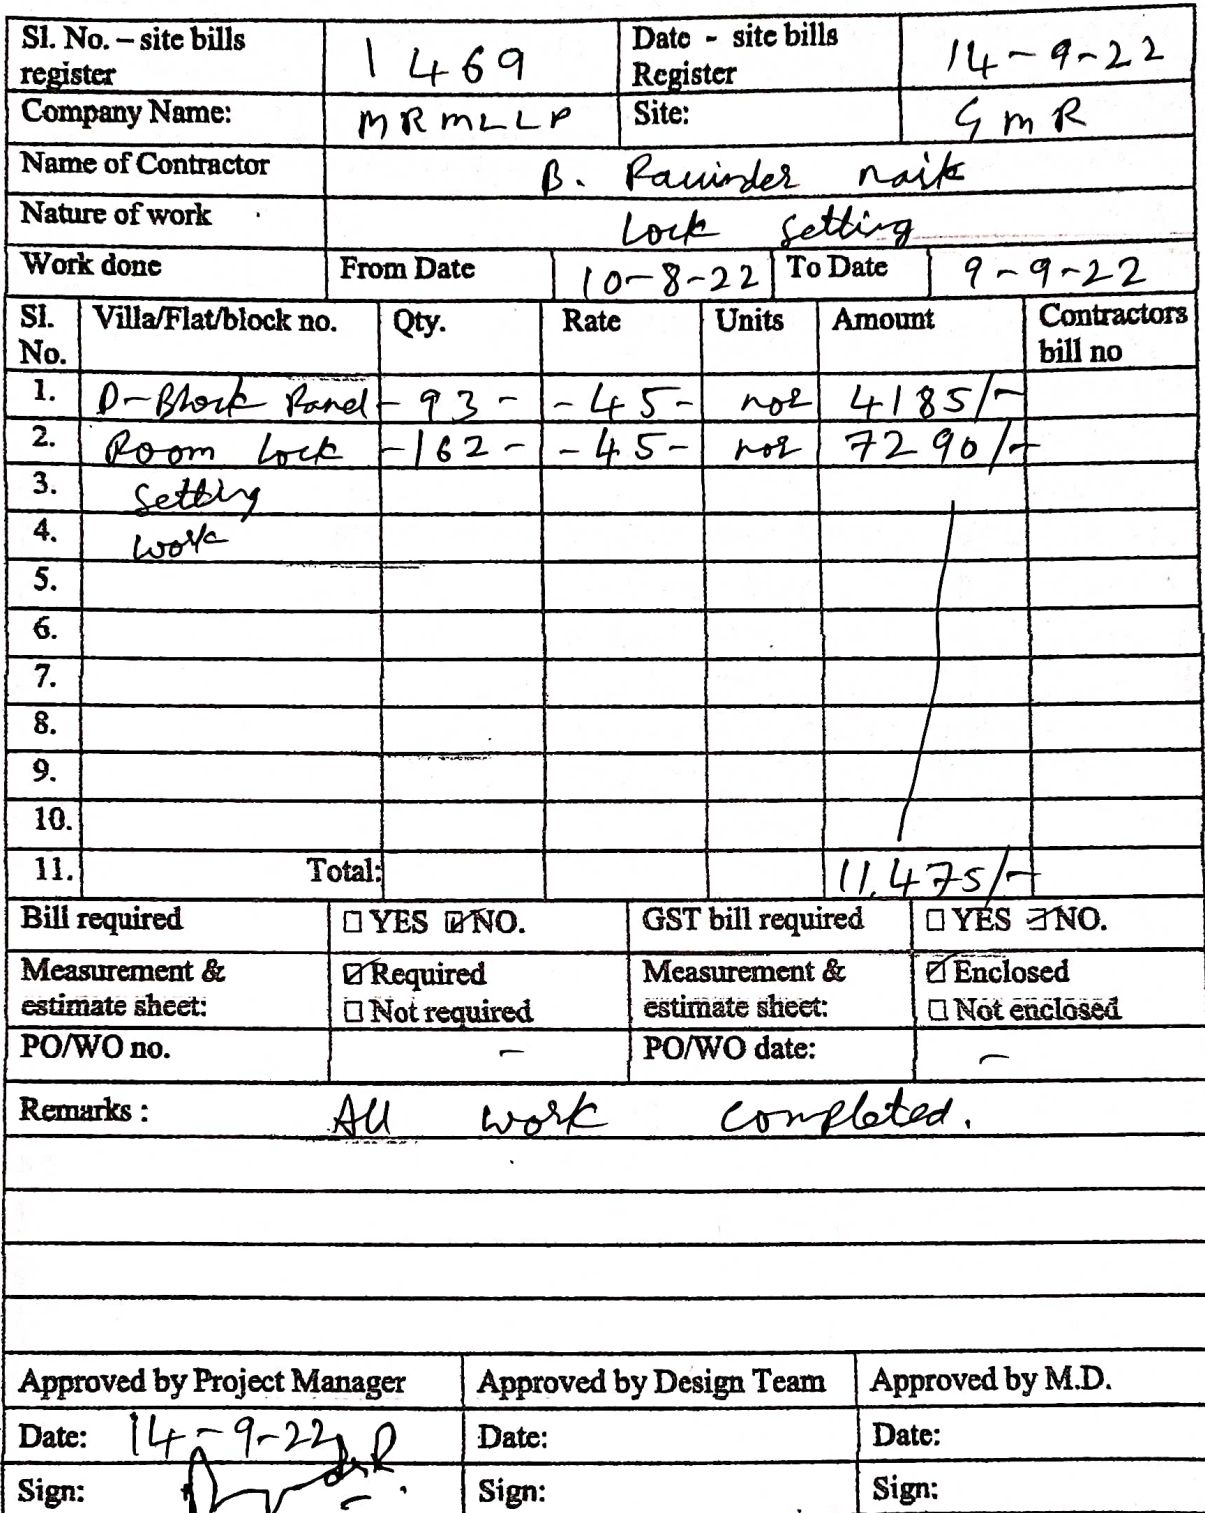 Sl. No. – site bills register 1469 Date - site bills Register 14-9-22
Company Name: MRMLLP Site: GMR
Name of Contractor B. Ravinder naik
Nature of work Lock Setting
Work done From Date 10-8-22 To Date 9-9-22
Sl. No. Villa/Flat/block no. Qty. Rate Units Amount Contractors bill no
1. D-Block Panel -93- -45- nos 4185/-
2. Room Lock -162- -45- nos 7290/-
3. Setting
4. work
5.
6.
7.
8.
9.
10.
11. Total: 11,475/-
Bill required ☐ YES ☑ NO. GST bill required ☐ YES ☑ NO.
Measurement & estimate sheet: ☑ Required ☐ Not required Measurement & estimate sheet: ☑ Enclosed ☐ Not enclosed
PO/WO no. – PO/WO date: –
Remarks : All work completed.
Approved by Project Manager Approved by Design Team Approved by M.D.
Date: 14-9-22 Date: Date:
Sign: Sign: Sign: